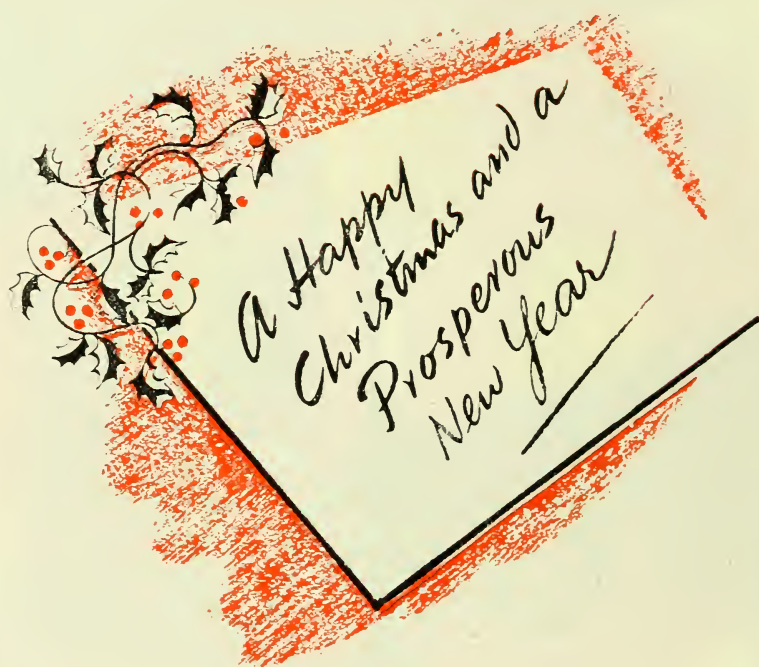 A Happy
Christmas and a
Prosperous
New Year